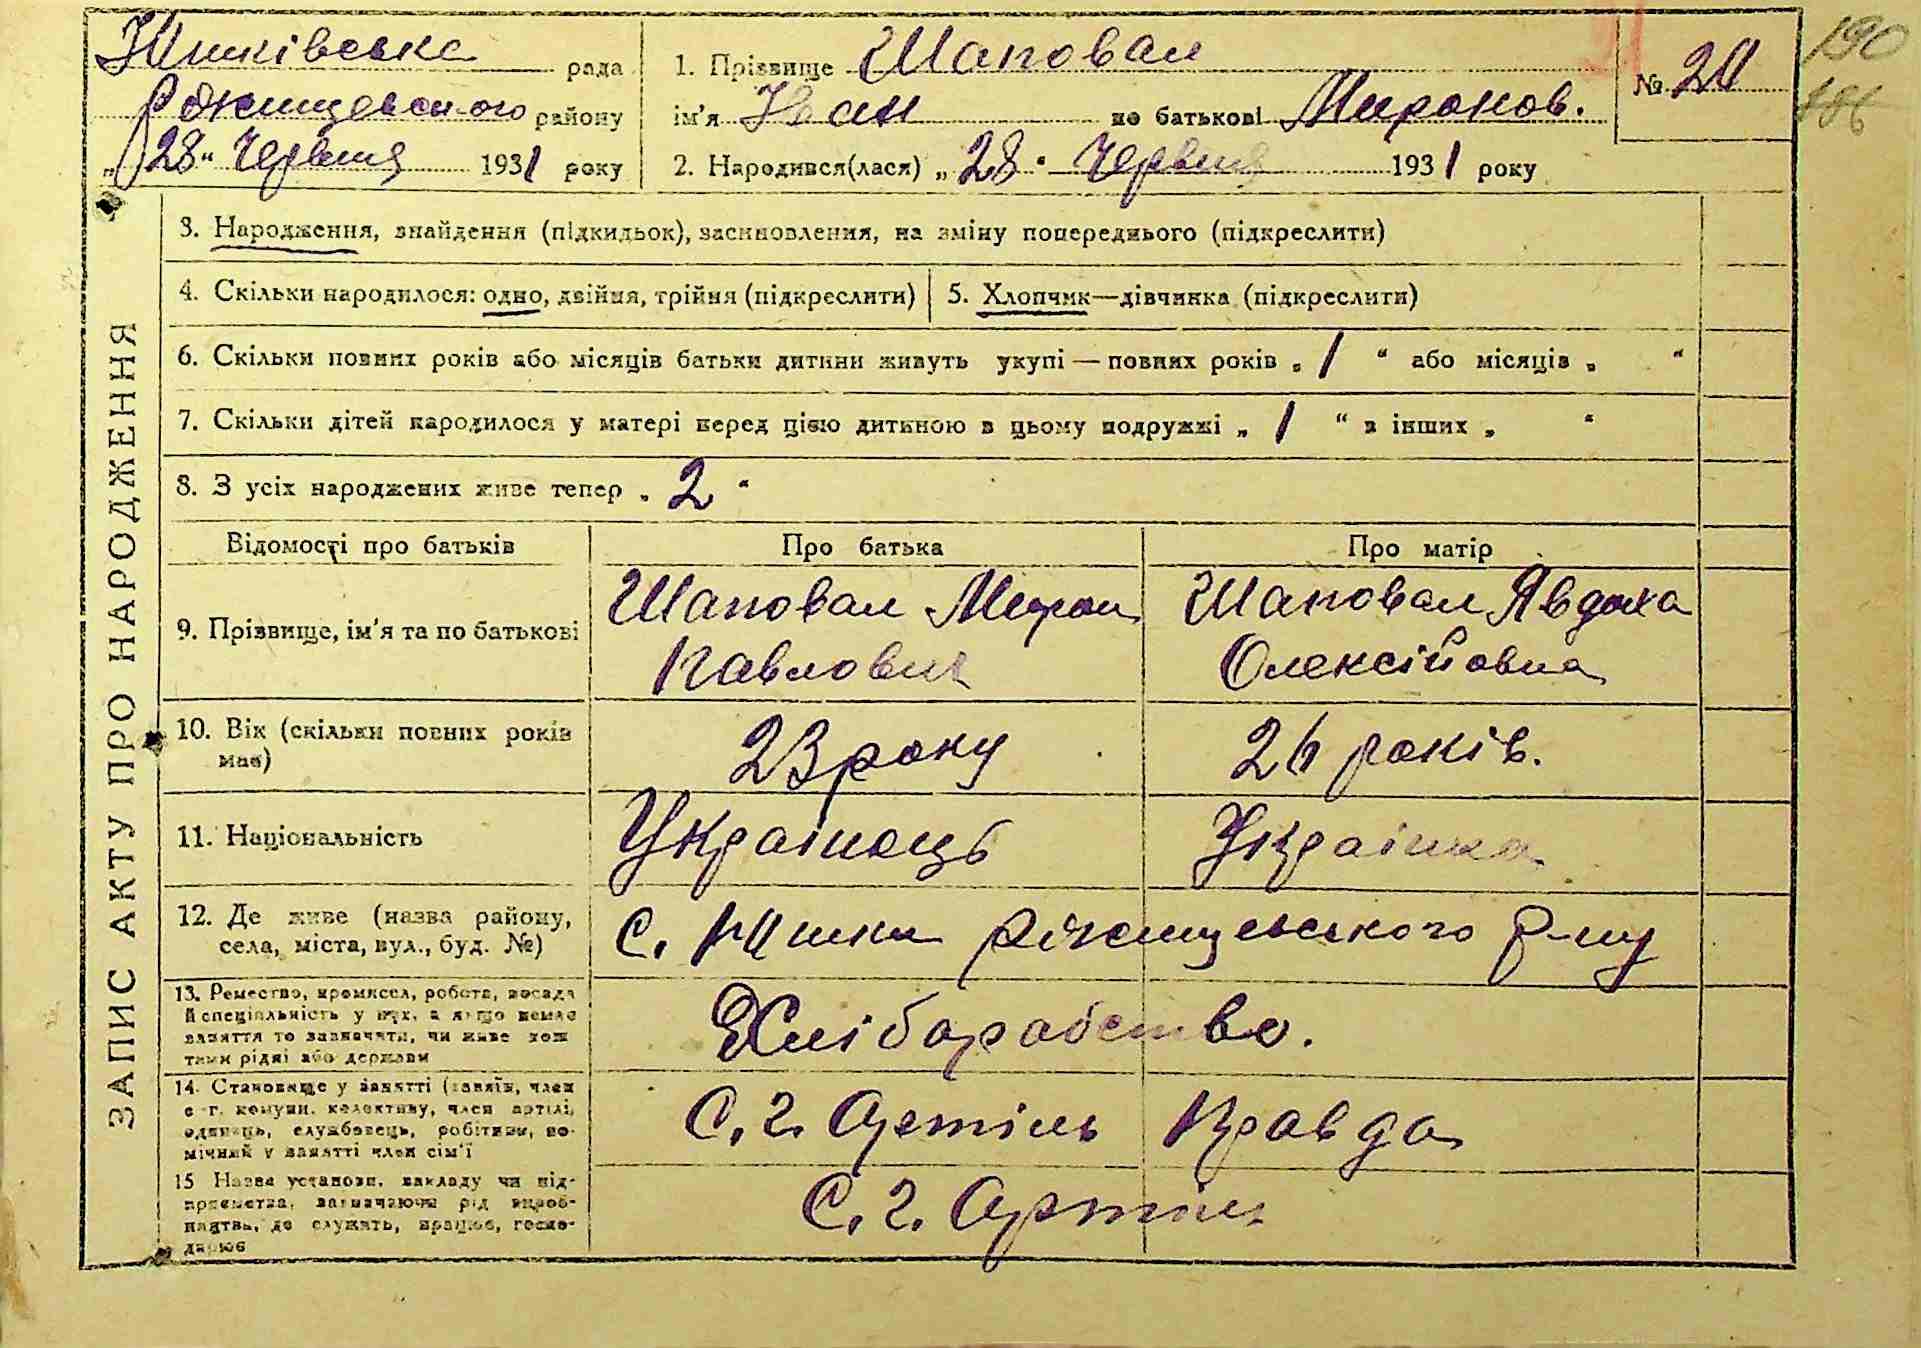 Юшківська рада
Ржищевського району
„28“ Червня 1931 року
1. Прізвище Шаповал
ім'я Іван по батькові Миронов.
2. Народився(лася) „28“ Червня 1931 року
№ 20
190
186
ЗАПИС АКТУ ПРО НАРОДЖЕННЯ
3. Народження, знайдення (підкидьок), засиновлення, на зміну попереднього (підкреслити)
4. Скільки народилося: одно, двійня, трійня (підкреслити)
5. Хлопчик—дівчинка (підкреслити)
6. Скільки повних років або місяців батьки дитини живуть укупі — повних років „ 1 “ або місяців „ “
7. Скільки дітей народилося у матері перед цією дитиною в цьому подружжі „ 1 “ з інших „ “
8. З усіх народжених живе тепер „ 2 “
Відомості про батьків
Про батька
Про матір
9. Прізвище, ім'я та по батькові
Шаповал Мирон
Павлович
Шаповал Явдоха
Олексійовна
10. Вік (скільки повних років
має)
23 року
26 років.
11. Національність
Українець
Українка
12. Де живе (назва району,
села, міста, вул., буд. №)
с. Юшки Ржищевського р-ну
13. Ремество, промисел, робота, посада
й спеціяльність у них, а якщо немає
заняття то зазначити, чи живе кош
тами рідні або держави
Хліборобство.
14. Становище у занятті (хазяїн, член
с.-г. комуни, колективу, член артілі,
одинець, службовець, робітник, по-
мічний у занятті член сім'ї
С. г. Артіль Правда
15 Назва установи, закладу чи під-
приємства, зазначаючи рід вироб-
ництва, де служить, працює, госпо-
дарює
С. г. Артіль